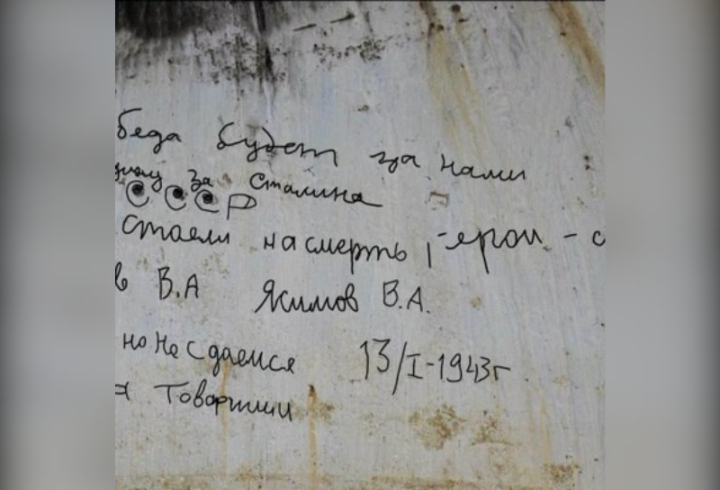 беда будет за нами
дину за Сталина
СССР
Стаели на смерть Герои - с
в В.А Якимов В.А.
но не сдаемся 13/I-1943г
я Товарищи